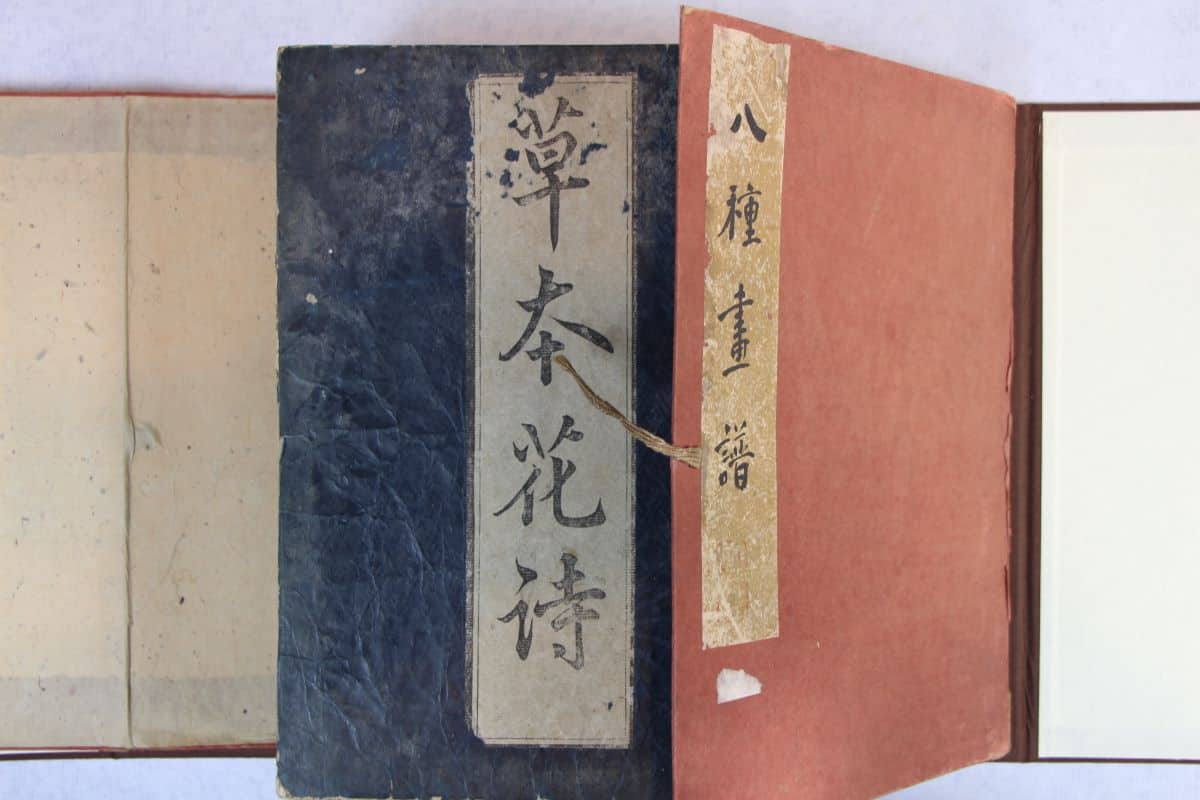 八種畫譜
草本花詩